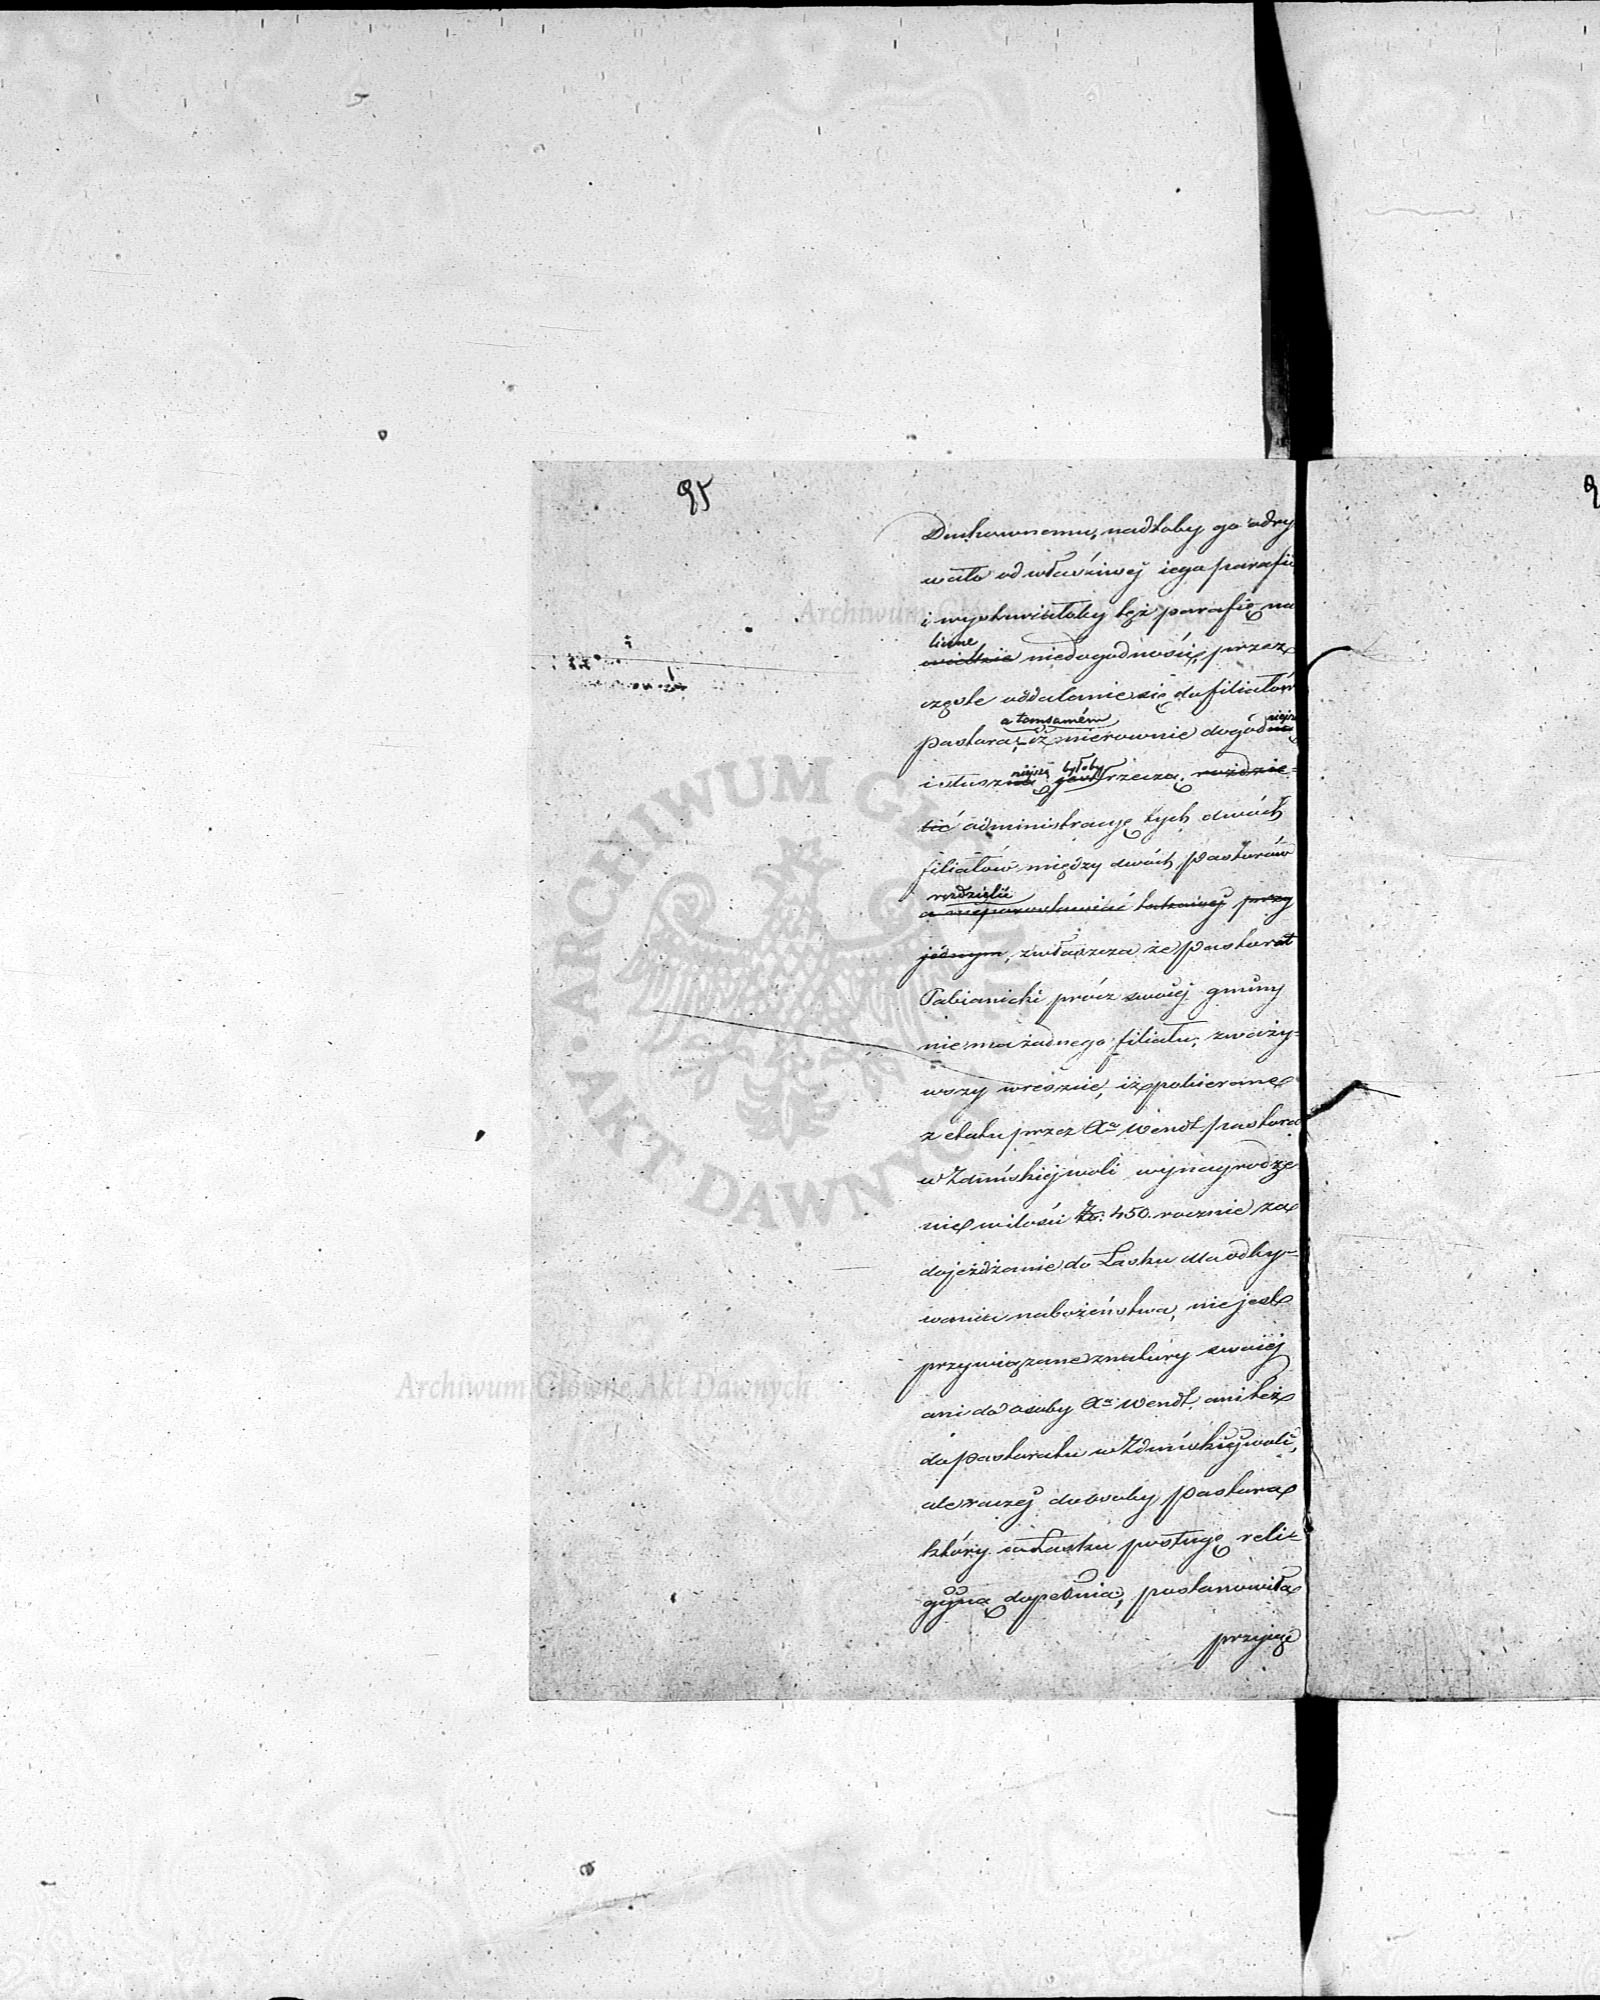 95
Duchownemu, nadtoby go odry
wało od właściwej iego parafii
i wystawiałoby też parafię na
liczne
niedogodności, przez
częste oddalanie się do filiałów
a temsamém
pastora, iż nierównie dogód niejszą
niejszą byłoby
i słuszną jest rzeczą, rozdzie-
lić administracyę tych dwóch
filiałów między dwóch Pastorów
rozdzielić
a niepozostawiać takowej przy
jednym, zwłaszcza że Pastorat
Pabianicki prócz swoiej gminy
niema żadnego filiału; zważy-
wszy wreszcie, iż pobierane
z etatu przez Xa Wendt pastora
w Zduńskiej woli wynagrodze
nie w ilości 450. rocznie za
dojeżdżanie do Łasku dla odby-
wania nabożeństwa, nie jest
przywiązane z natury swoiej
ani do osoby Xa Wendt ani też
do pastoratu w Zduńskiéj woli,
ale raczej do osoby Pastora
który w Łasku posługę reli-
gijną dopełnia, postanowiła
przyjąć
Archiwum Główne Akt Dawnych
ARCHIWUM GŁÓWNE • AKT DAWNYCH •